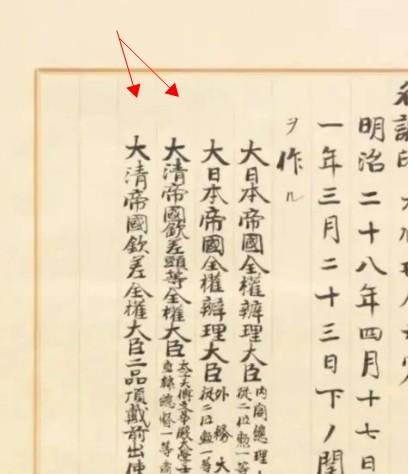 明治二十八年四月十七日
一年三月二十三日下ノ関
ヲ作ル
大日本帝國全權辦理大臣內閣總理
從二位勲一等
大日本帝國全權辦理大臣外務大
從二位勲一等
大清帝國欽差頭等全權大臣太子太傅文華殿大學士
一等肅
大清帝國欽差全權大臣二品頂戴前出使